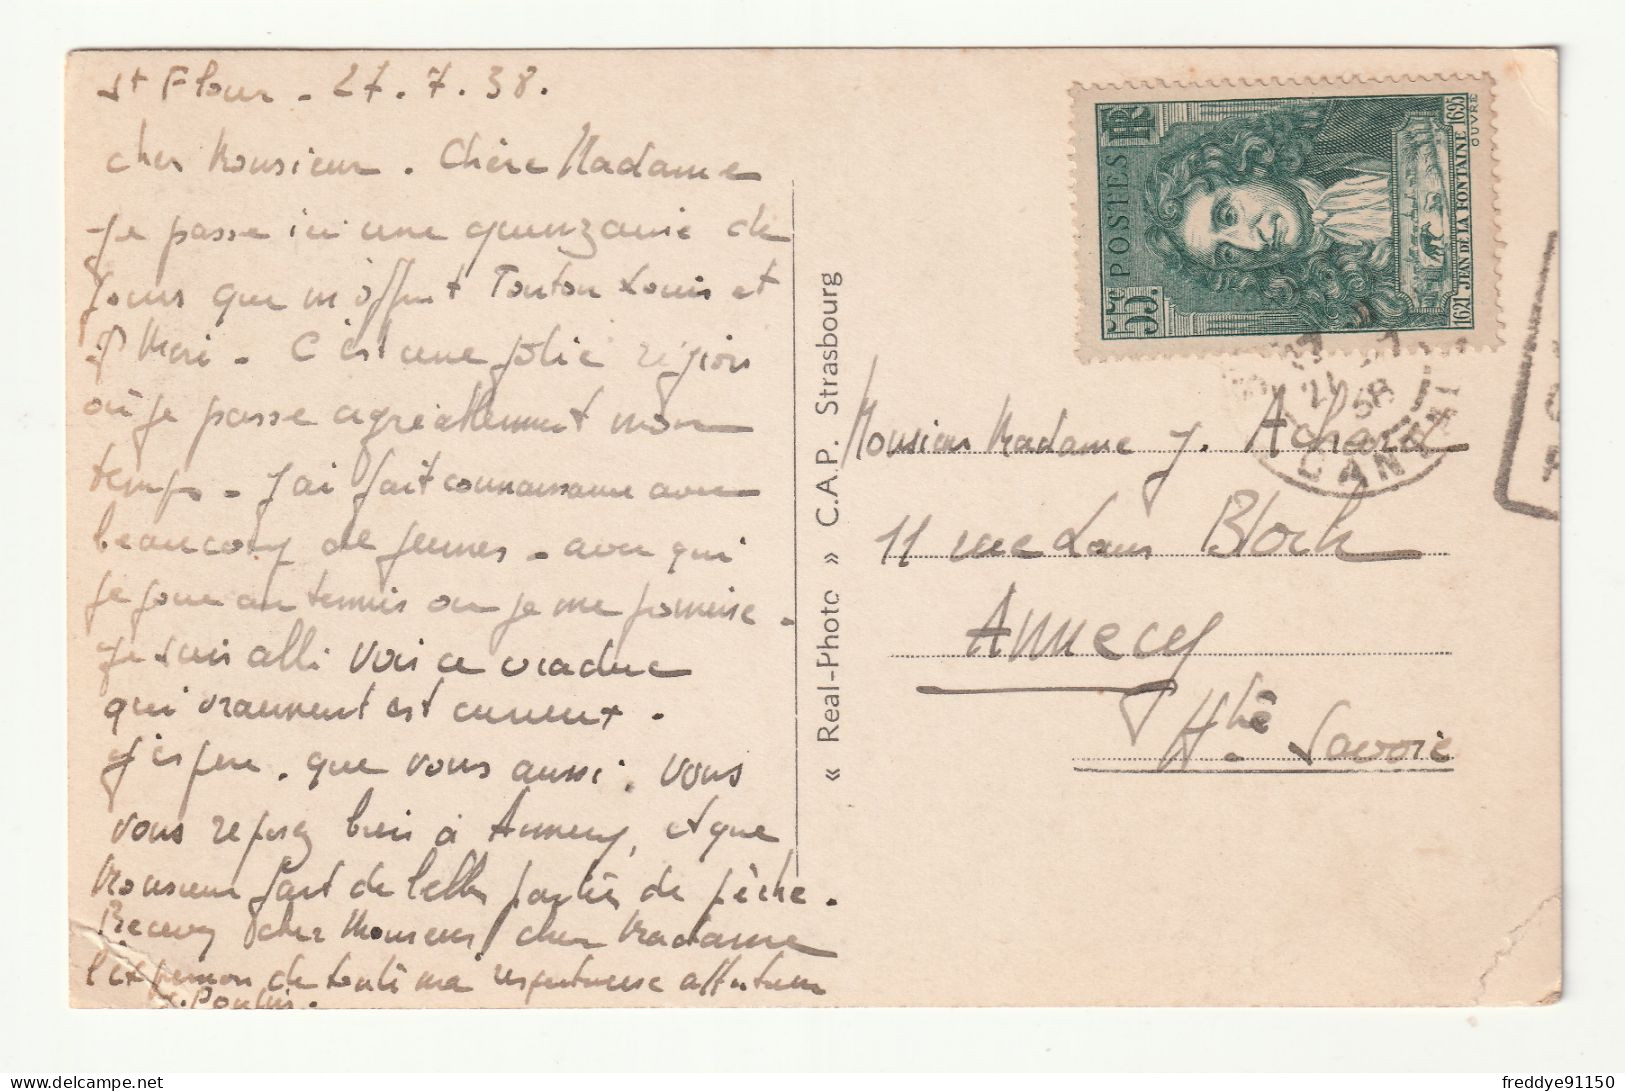 St Flour - 27.7.38.
Cher Monsieur. Chère Madame
Je passe ici une quinzaine de
jours que m'offrent Tonton Louis et
C'est une jolie région
où je passe agréablement mon
temps - J'ai fait connaissance avec
beaucoup de jeunes - avec qui
je joue au tennis ou je me promène -
Je suis allé voir ce viaduc
qui vraiment est curieux.
J'espère que vous aussi. vous
vous reposez bien à Annecy, et que
Monsieur fait de belles parties de pêche.
Recevez cher Monsieur, chère Madame
l'expression de toute ma respectueuse affection
« Real-Photo » C.A.P. Strasbourg
POSTES
RF
55c.
1621 JEAN DE LA FONTAINE 1695
OUVRÉ
38
Monsieur Madame J.
11 rue Louis Bloch
Annecy
Hte Savoie
freddye91150